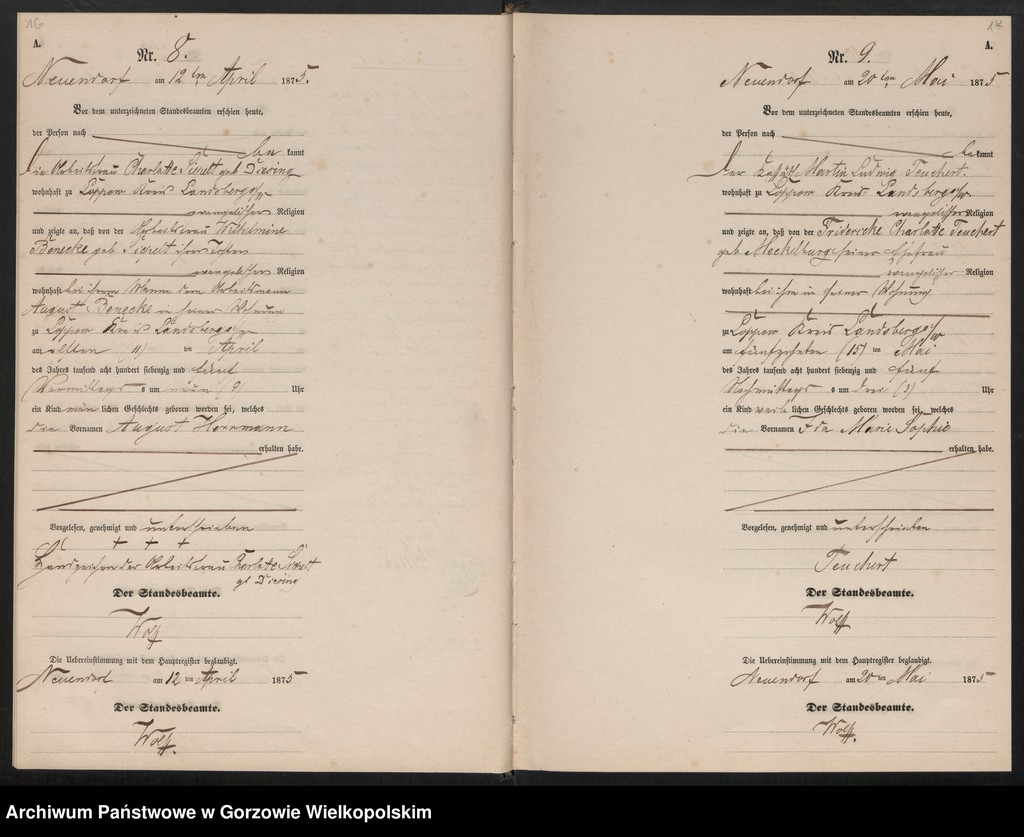 16
A.
Nr. 8.
Neuendorf am 12ten April 1875.
Vor dem unterzeichneten Standesbeamten erschien heute,
der Person nach
be kannt
die Arbeitsfrau Charlotte geb Diesing
wohnhaft zu Loppow Kreis Landsberg a/w
evangelischer Religion
und zeigte an, daß von der Arbeitsfrau Wilhelmine
Benecke geb ihrer Tochter
evangelischer Religion
wohnhaft bei ihrem Manne dem Arbeitsmann
August Benecke in seiner Wohnung
zu Loppow Kreis Landsberg a/w
am elften (11) ten April
des Jahres tausend acht hundert siebenzig und fünf
Vormittags s um neun (9) Uhr
ein Kind männ lichen Geschlechts geboren worden sei, welches
die Vornamen August Herrmann
erhalten habe.
Vorgelesen, genehmigt und unterschrieben
+ + +
Handzeichen der Arbeitsfrau Charlotte
geb Diesing
Der Standesbeamte.
Wolff
Die Uebereinstimmung mit dem Hauptregister beglaubigt.
Neuendorf am 12 ten April 1875
Der Standesbeamte.
Wolff.
17
A.
Nr. 9.
Neuendorf am 20ten Mai 1875
Vor dem unterzeichneten Standesbeamten erschien heute,
der Person nach
be kannt
Der Martin Ludwig Teuchert.
wohnhaft zu Loppow Kreis Landsberg a/w
evangelischer Religion
und zeigte an, daß von der Fridericke Charlotte Teuchert
geb Meckelburg seiner Ehefrau
evangelischer Religion
wohnhaft bei ihm in seiner Wohnung
zu Loppow Kreis Landsberg a/w
am fünfzehnten (15) ten Mai
des Jahres tausend acht hundert siebenzig und fünf
Nachmittags s um drei (3) Uhr
ein Kind weib lichen Geschlechts geboren worden sei, welches
die Vornamen Ida Marie Sophie
erhalten habe.
Vorgelesen, genehmigt und unterschrieben
Teuchert
Der Standesbeamte.
Wolff
Die Uebereinstimmung mit dem Hauptregister beglaubigt.
Neuendorf am 20 ten Mai 1875
Der Standesbeamte.
Wolff.
Archiwum Państwowe w Gorzowie Wielkopolskim